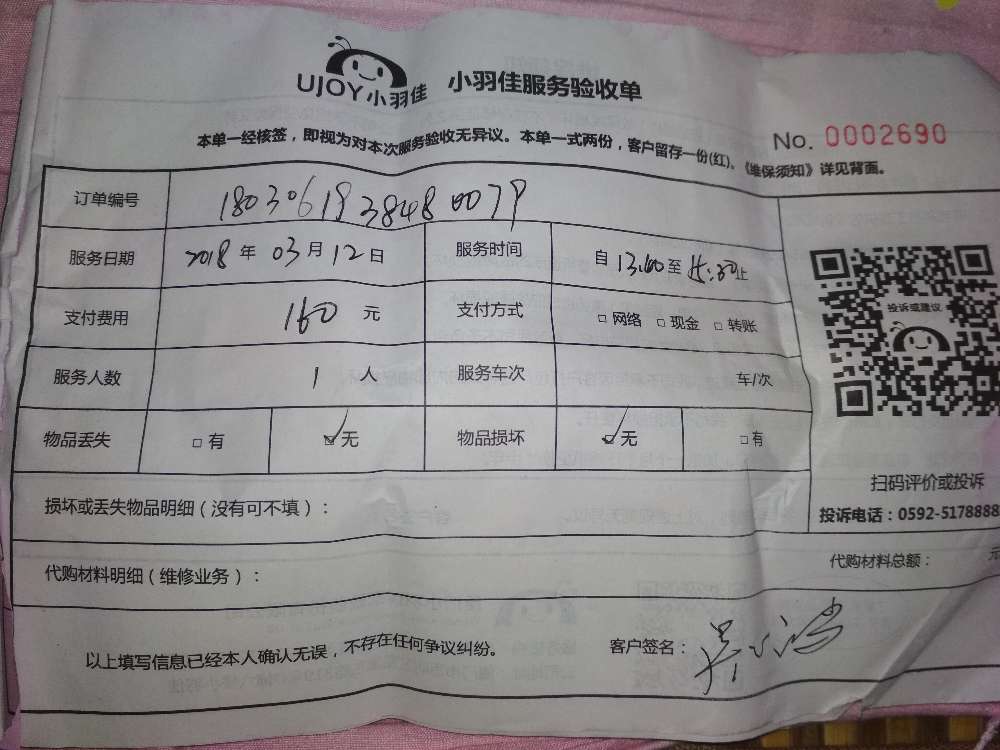 UJOY小羽佳 小羽佳服务验收单
No. 0002690
本单一经核签，即视为对本次服务验收无异议。本单一式两份，客户留存一份(红)、《维保须知》详见背面。
订单编号 180306193848 0079
服务日期 2018 年 03 月 12 日 服务时间 自 13:00 至 15:30 止
支付费用 160 元 支付方式 □ 网络 □ 现金 □ 转账
服务人数 1 人 服务车次 车/次
物品丢失 □ 有 ☑ 无 物品损坏 ☑ 无 □ 有
投诉或建议
扫码评价或投诉
投诉电话：0592-5178888
损坏或丢失物品明细（没有可不填）：
代购材料明细（维修业务）： 代购材料总额： 元
以上填写信息已经本人确认无误，不存在任何争议纠纷。 客户签名：